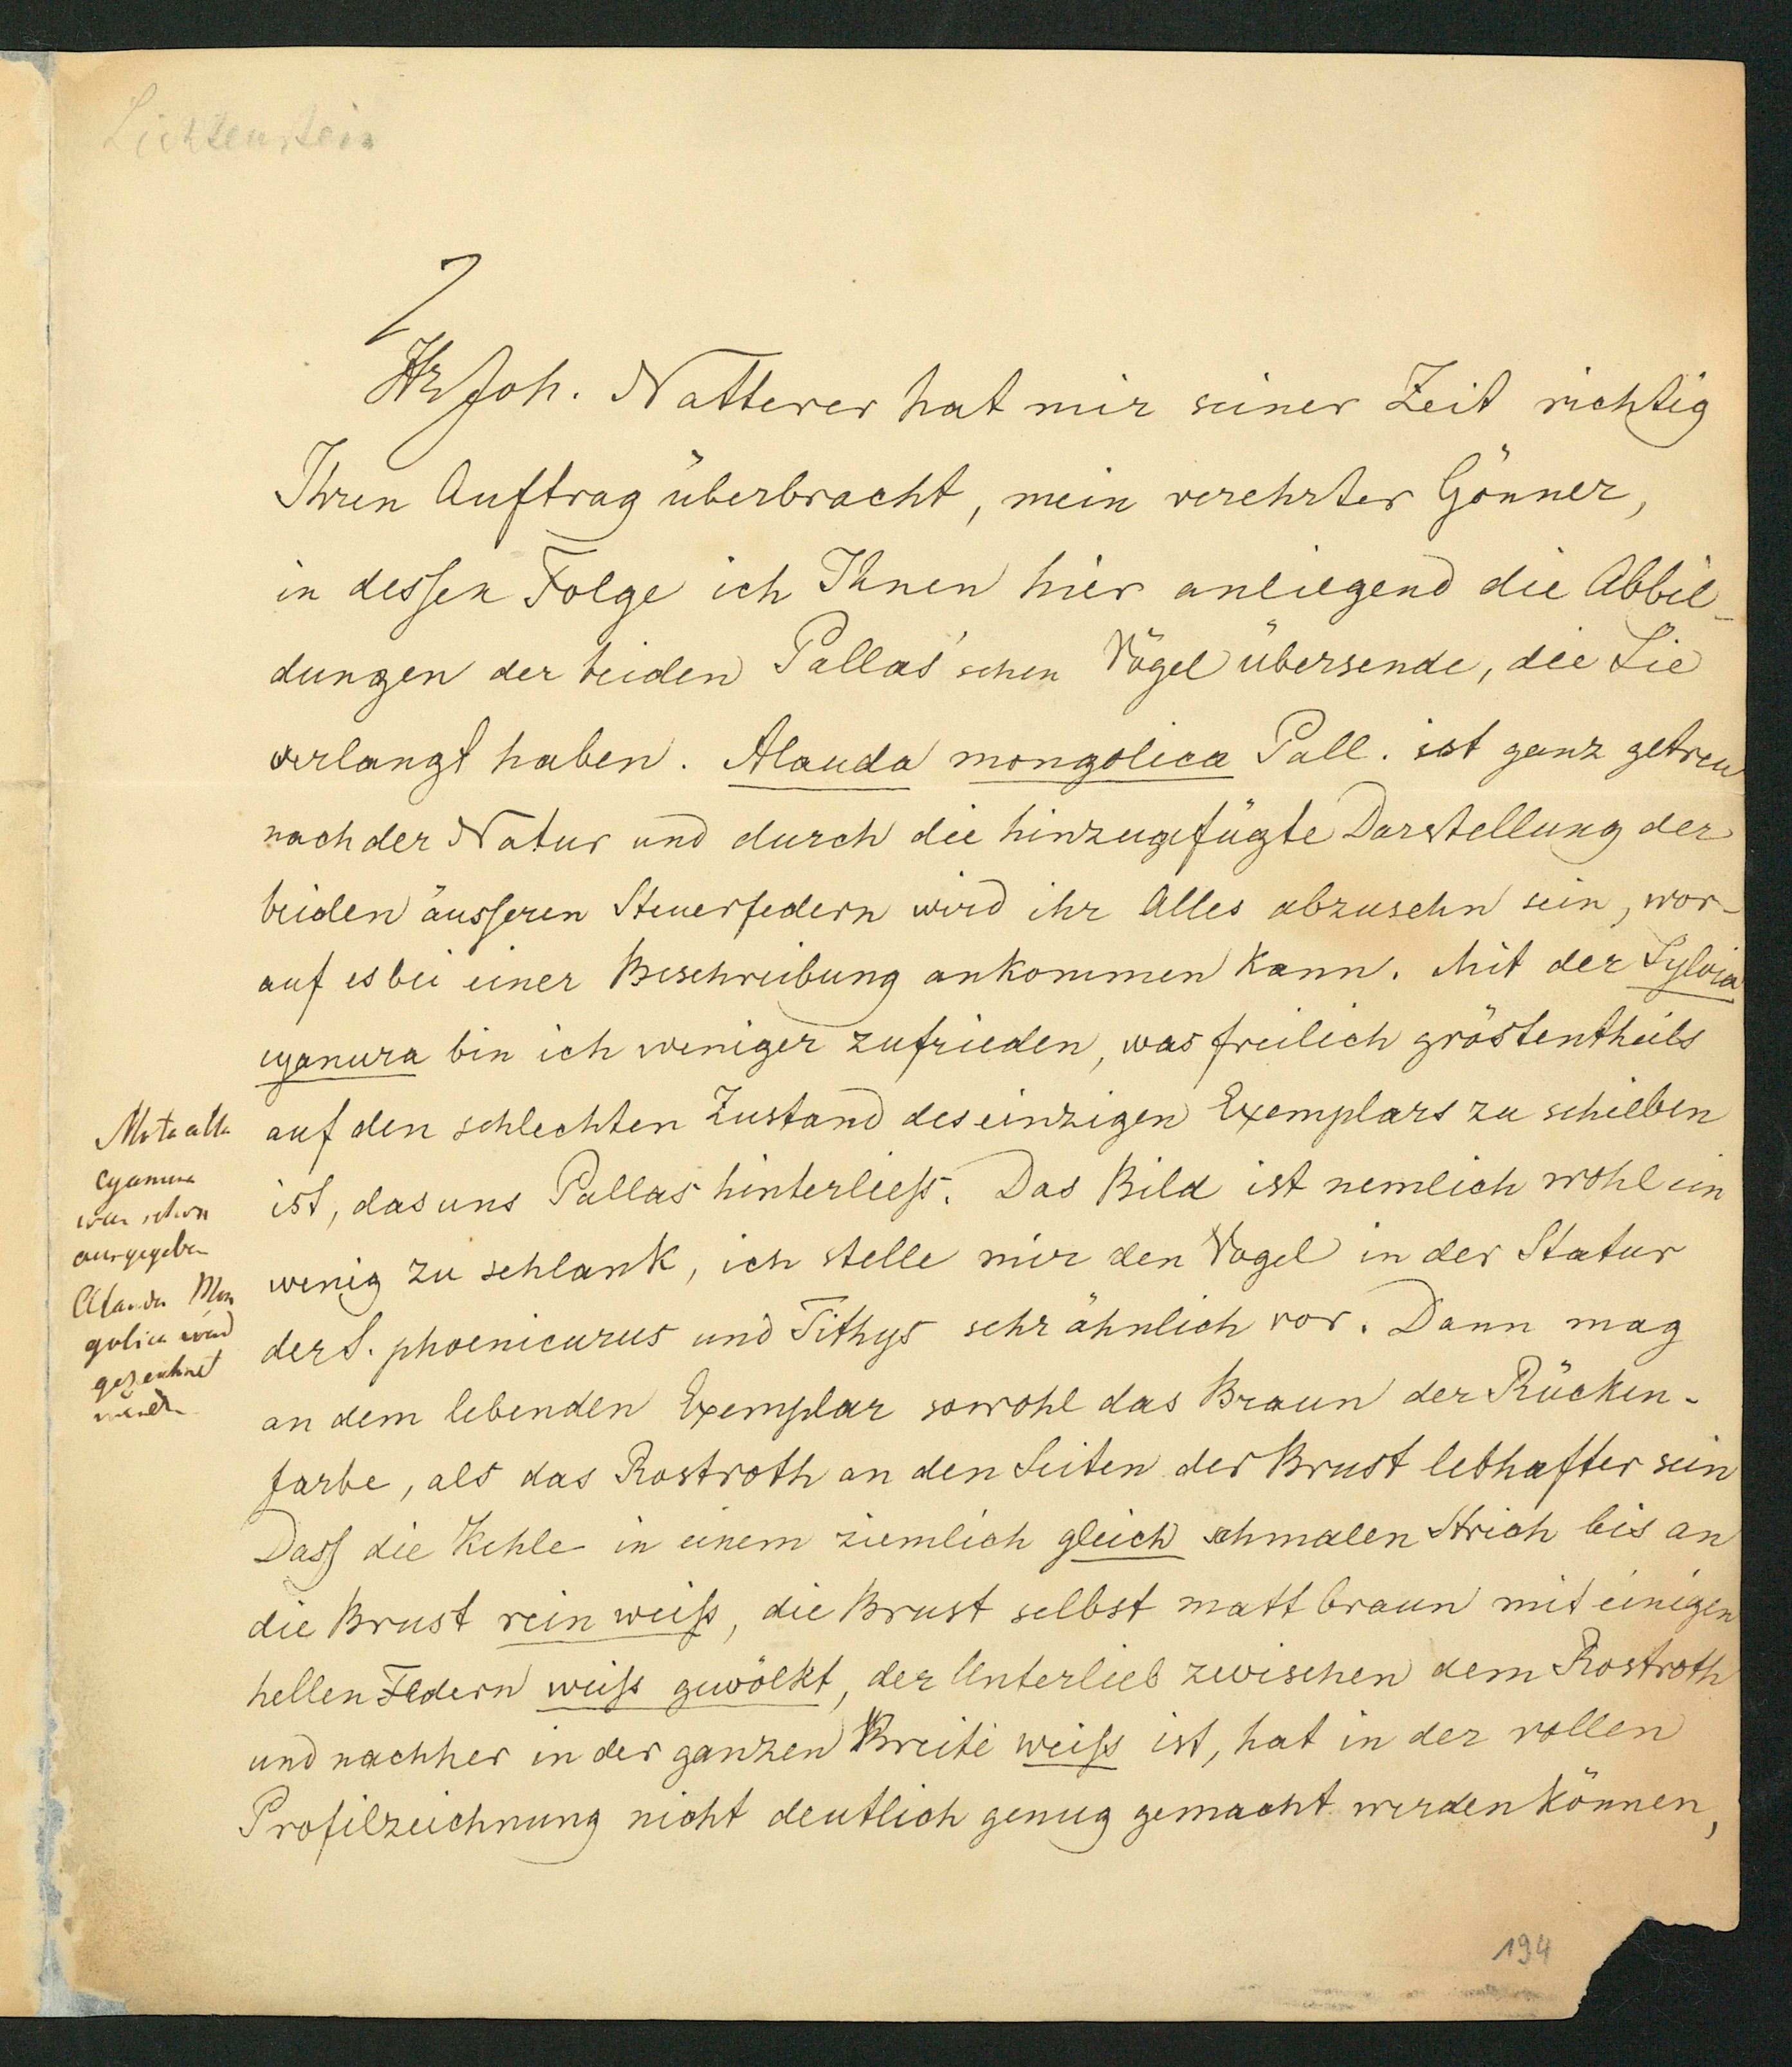 Lichtenstein
Hr Joh. Natterer hat mir seiner Zeit richtig
Ihren Auftrag überbracht, mein verehrter Gönner,
in dessen Folge ich Ihnen hier anliegend die Abbil-
dungen der beiden Pallas'schen Vögel übersende, die Sie
verlangt haben. Alauda mongolica Pall. ist ganz getreu
nach der Natur und durch die hinzugefügte Darstellung der
beiden äusseren Steuerfedern wird ihr Alles abzusehn sein, wor-
auf es bei einer Beschreibung ankommen kann. Mit der Sylvia
cyanura bin ich weniger zufrieden, was freilich gröstentheils
auf den schlechten Zustand des einzigen Exemplars zu schieben
ist, das uns Pallas hinterließ. Das Bild ist nemlich wohl ein
wenig zu schlank, ich stelle mir den Vogel in der Statur
der S. phoenicurus und Tithys sehr ähnlich vor. Dann mag
an dem lebenden Exemplar sowohl das Braun der Rücken-
farbe, als das Rostroth an den Seiten der Brust lebhafter sein
Dass die Kehle in einem ziemlich gleich schmalen Strich bis an
die Brust rein weiß, die Brust selbst matt braun mit einigen
hellen Federn weiß gewölkt, der Unterlieb zwischen dem Rostroth
und nachher in der ganzen Breite weiß ist, hat in der vollen
Profilzeichnung nicht deutlich genug gemacht werden können,
Motacilla
cyanura
war schon
ausgegeben
Alauda Mon
golica wird
gezeichnet
werden
194